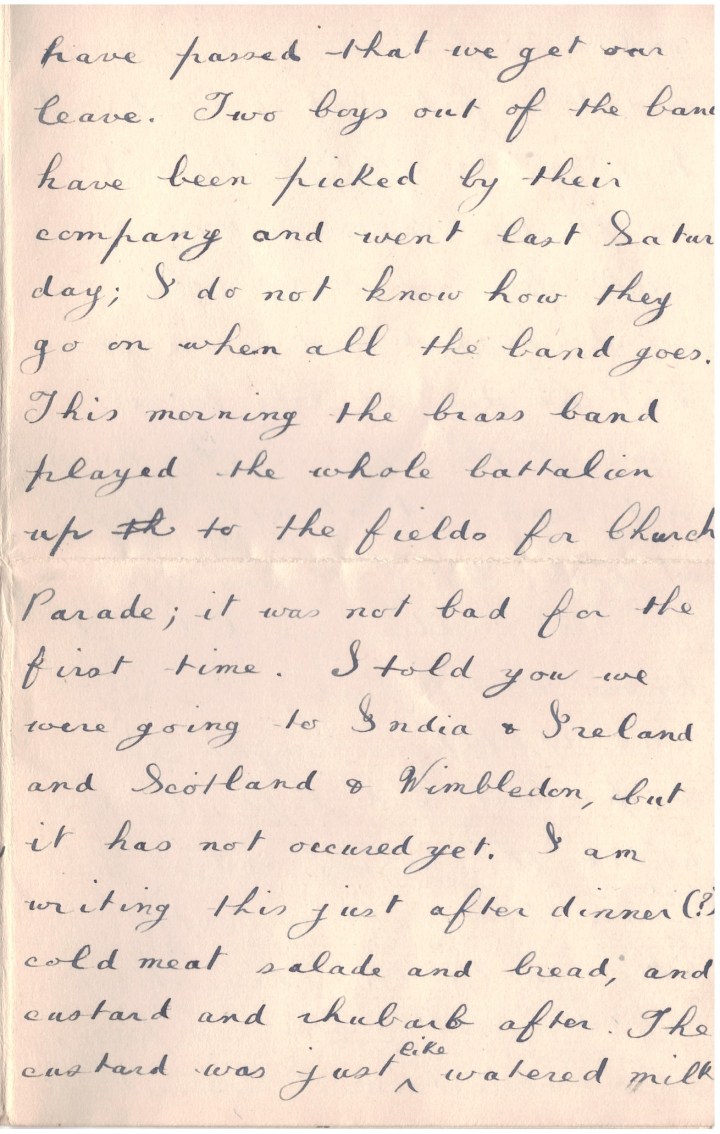 have passed that we get our
leave. Two boys out of the band
have been picked by their
company and went last Satur
day; I do not know how they
go on when all the band goes.
This morning the brass band
played the whole battalion
up th to the fields for Church
Parade; it was not bad for the
first time. I told you we
were going to India & Ireland
and Scotland & Wimbledon, but
it has not occured yet. I am
writing this just after dinner (?)
cold meat salade and bread, and
custard and rhubarb after. The
custard was just like watered milk